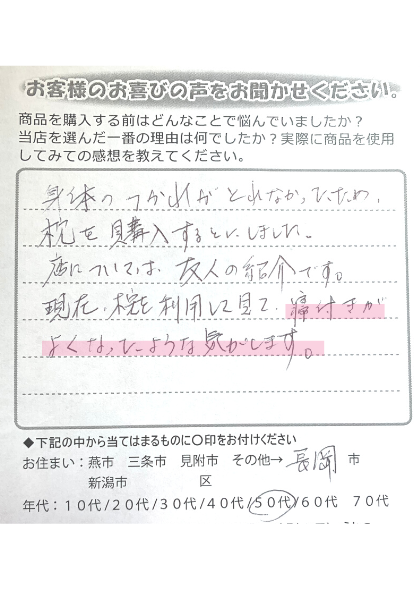 お客様のお喜びの声をお聞かせください。
商品を購入する前はどんなことで悩んでいましたか？
当店を選んだ一番の理由は何でしたか？実際に商品を使用
してみての感想を教えてください。
身体のつかれがとれなかったため、
枕を購入することにしました。
店については、友人の紹介です。
現在、枕を利用して見て、寝付きが
よくなったような気がします。
◆下記の中から当てはまるものに〇印をお付けください
お住まい：燕市　三条市　見附市　その他→長岡市
新潟市　区
年代：１０代/２０代/３０代/４０代/５０代/６０代　７０代